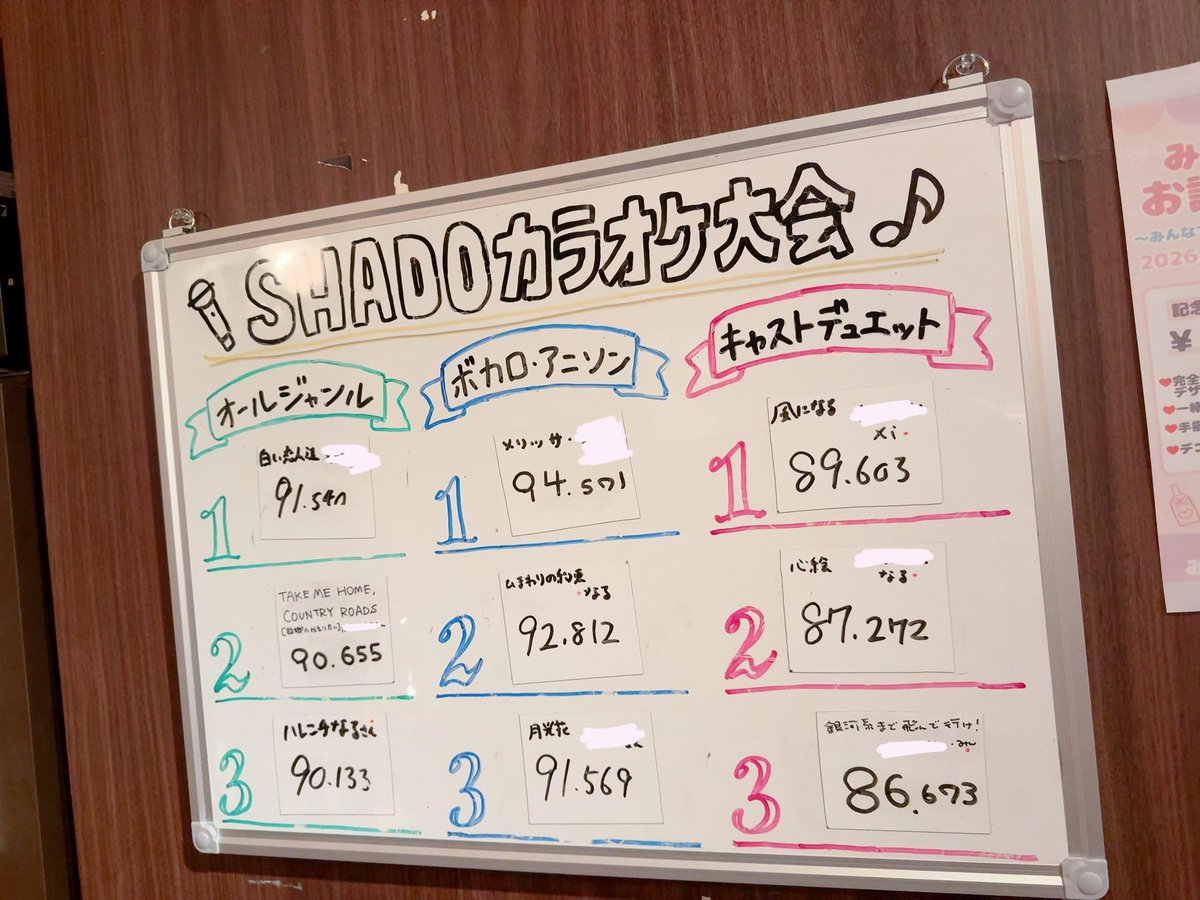 SHADOカラオケ大会♪
オールジャンル
1
白い恋人達
91.547
2
TAKE ME HOME,
COUNTRY ROADS
[故郷へかえりたい]
90.655
3
ハレンチなるさん
90.133
ボカロ・アニソン
1
メリッサ・
94.571
2
ひまわりの約束
なる
92.812
3
月光花
91.569
キャストデュエット
1
風になる
xi
89.603
2
心絵
なる
87.272
3
銀河系まで飛んで行け!
・みん
86.673
み
お
〜みんな
2026
記念
¥
♥完全
デザ
♥一緒
♥手描
♥デコ
み